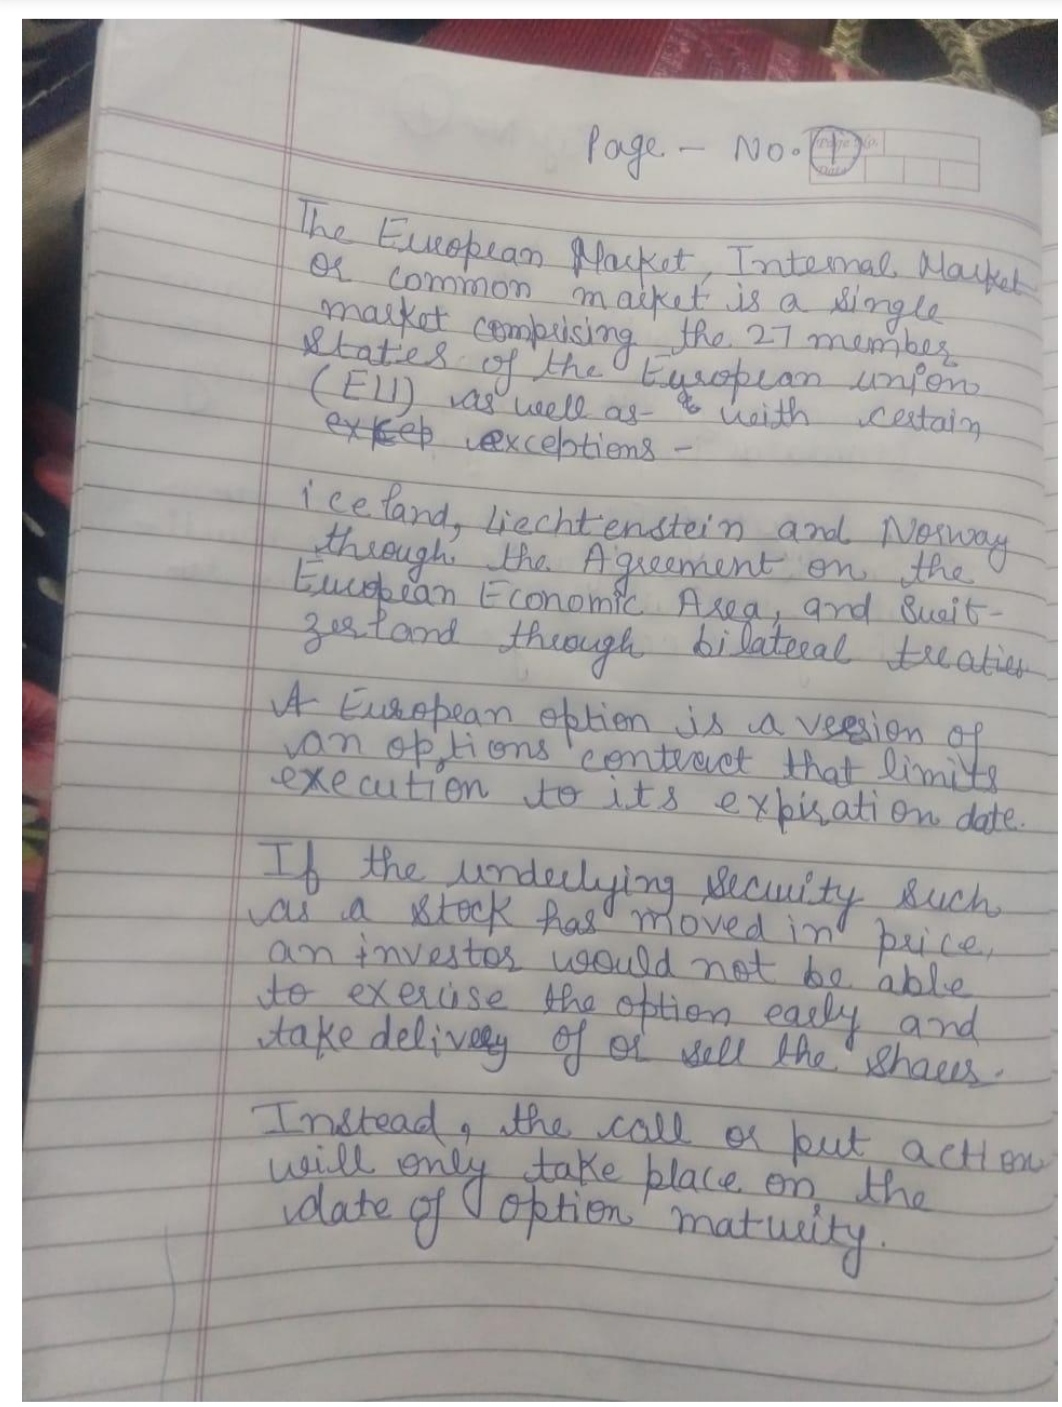 Page - No. 1
Page No.
Date
The European Market, Internal Market
or common market is a single
market comprising the 27 member
states of the European union
(EU) as well as - & with certain
exkep exceptions -
iceland, Liechtenstein and Norway
through the Agreement on the
European Economic Area, and Swit-
zerland through bilateral treaties
A European option is a version of
an options contract that limits
execution to its expiration date.
If the underlying security such
as a stock has moved in price,
an investor would not be able
to exercise the option early and
take delivery of or sell the shares.
Instead, the call or put action
will only take place on the
date of option maturity.